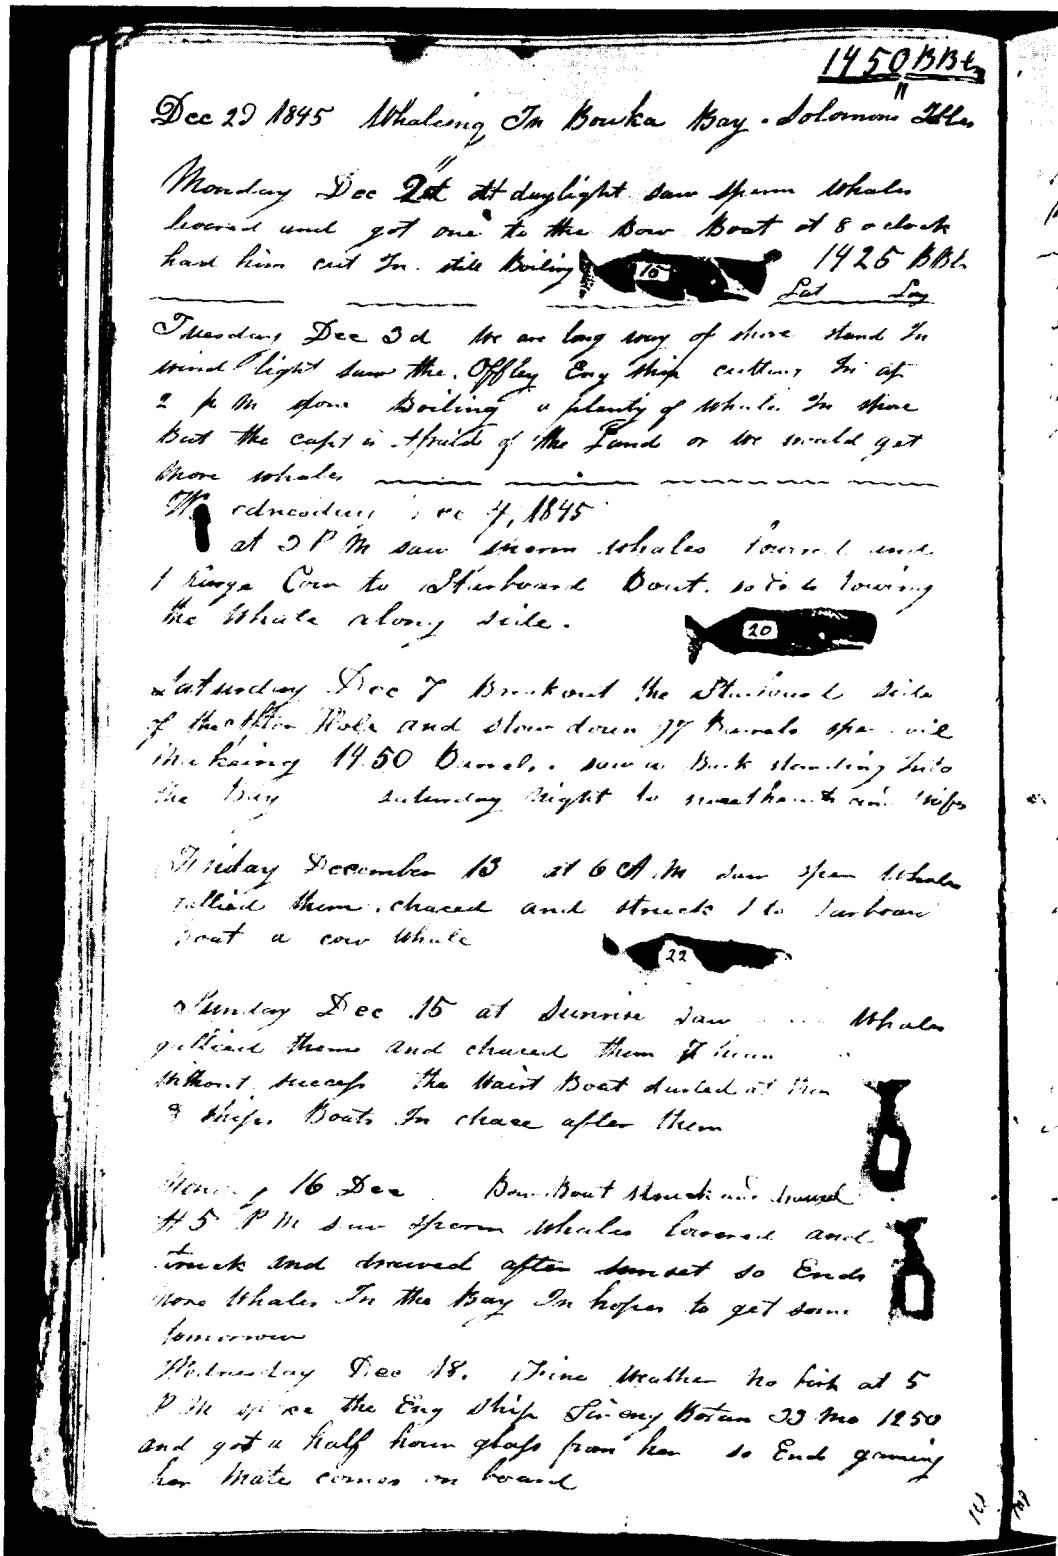 1450 BBls
Dec 2d 1845 Whaleing In Bowka Bay. Solomons Isles
Monday Dec 2d At daylight saw sperm whales
lowered and got one to the Bow Boat at 8 oclock
had him cut In. still Boiling 15 1425 BBls
Lat Log
Tuesday Dec 3d We are long way of shore stand In
wind light saw the Offley Eng ship cutting In at
2 P M done Boiling a plenty of whales In shore
But the capt is Afraid of the Land or we would get
more whales
Wednesday Dec 4, 1845
at 2 P M saw sperm whales lowered and
1 large Cow to Starboard Boat. so Ends towing
the Whale along side.
20
Saturday Dec 7 Breakout the Starboard side
of the After Hole and stow down 77 Barrels sperm oil
Makeing 1450 Barrels. saw a Bark standing Into
the Bay saturday Night to sweethearts and wifes
Friday December 13 at 6 A.M saw sperm Whales
gallied them. chaced and struck 1 to Larboard
boat a cow Whale
22
Sunday Dec 15 at Sunrise saw Whales
gallied them and chaced them
without success the Waist Boat darted at them
3 ships Boats In chace after them
Monday 16 Dec Bow Boat struck and drawed
At 5 P M saw sperm whales lowered and
struck and drawed after sunset so Ends
more Whales In the Bay In hopes to get some
tomorrow
Wednesday Dec 18. Fine Weather No fish at 5
P M spoke the Eng ship 33 Mo 1250
and got a half hour glass from her so End gaming
her Mate comes on board